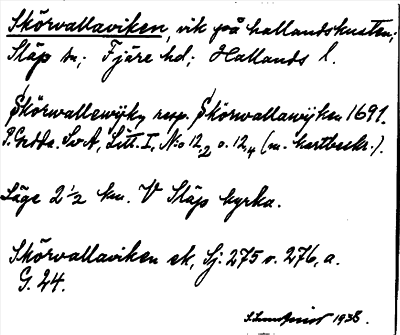 Skörvallaviken, vik på hallandskusten;
Släp sn; Fjäre hd; Hallands l.
Skörwallewijky resp. Skörwallawijken 1691.
P. Gedda. SvA, Litt. I, N:o 12,2 o. 12,4 (m. kartbeskr.).
Läge 2 1/2 km. V Släps kyrka.
Skörvallaviken ek, Sj: 275 o. 276, a.
G. 24.
1938.